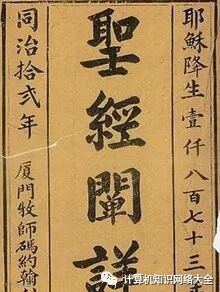 耶穌降生壹仟八百七十三
聖經闡詳
同治拾弍年
厦門牧師碼約翰
计算机知识网络大全